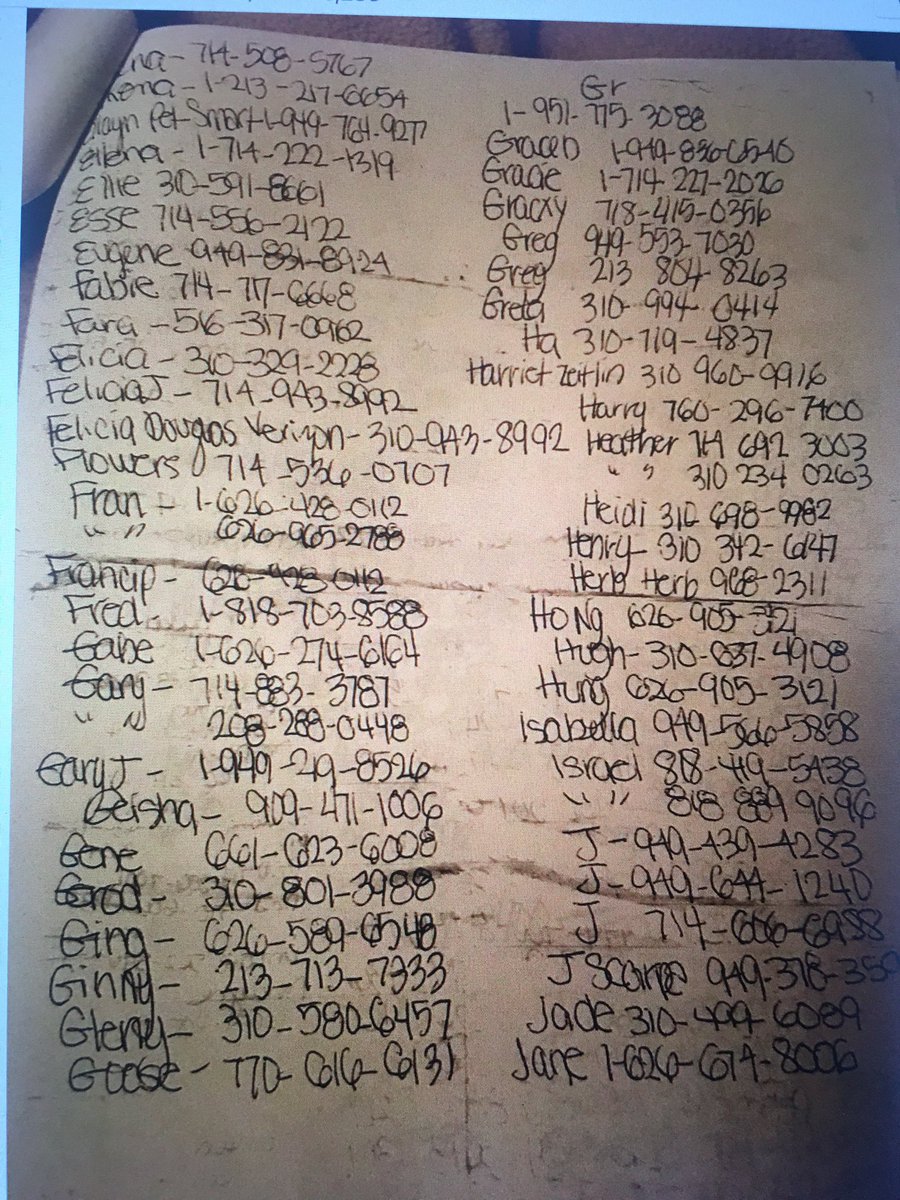 714-508-5767
1-213-217-6654
Pet-Smart 1-949-764-9277
1-714-222-1319
Ellie 310-591-8661
Esse 714-556-2122
Eugene 949-831-8924
Fabie 714-717-6668
Fara - 516-317-0962
Felicia - 310-329-2228
Felicia J - 714-943-8992
Felicia Douglas Verizon - 310-943-8992
Flowers 714-536-0707
Fran - 1-626-428-0112
" " 626-965-2788
Francip - 626-928-0112
Fred 1-818-703-8588
Gabe 1-626-274-6164
Gary - 714-883-3787
" " 208-288-0448
Gary J - 1-949-219-8526
Geisha - 909-471-1006
Gene 661-623-6008
310-801-3988
Ging - 626-589-6548
Ginny - 213-713-7333
Gleny - 310-580-6457
Goose - 770-616-6131
Gr
1-951-775-3088
Grace D
Gracie 1-714-227-2026
Gracxy 718-415-0356
Greg 949-553-7030
Greg 213 804-8263
Greta 310-994-0414
Ha 310-719-4837
Harriet Zeitlin 310 960-9916
Harry 760-296-7400
Heather 714 692 3003
" " 310 234 0263
Heidi 310 698-9982
Henry 310 342-6147
Herb Herb 968-2311
Hong 626-905-
Hugh - 310-637-4908
Hung 626-905-3121
Isabella 949-566-5858
Israel 818-419-5438
" " 818 889 9096
J - 949-439-4283
J - 949-644-1240
J 714-666-6988
J Scorpe 949-378-359
Jade 310-499-6089
Jane 1-626-674-8006